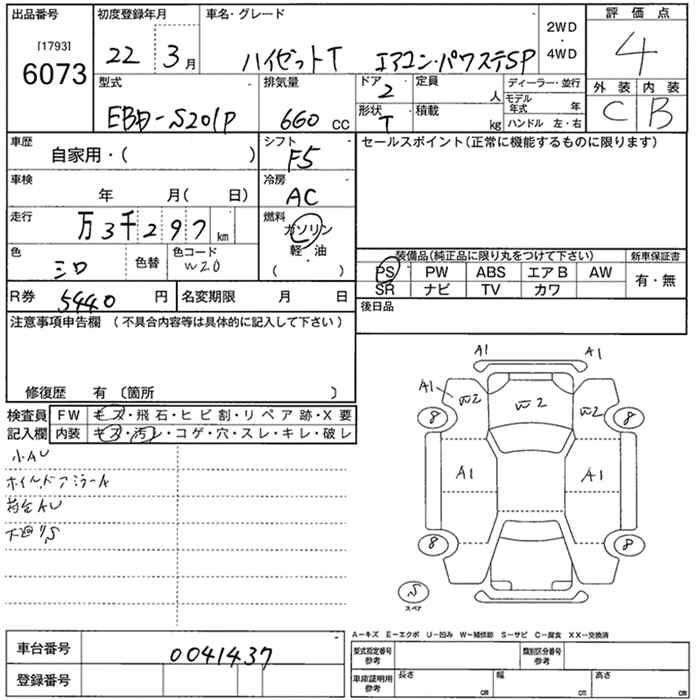 出品番号
[1793]
6073
初度登録年月
22年3月
車名・グレード
ハイゼットT エアコン・パワステSP
2WD
・
4WD
評価点
4
外装 内装
C B
型式
EBD-S201P
排気量
660 cc
ドア
2
形状
T
定員
人
積載
kg
ディーラー・並行
モデル年式 年
ハンドル 左・右
車歴
自家用・( )
シフト
F5
セールスポイント(正常に機能するものに限ります)
車検
年 月( 日)
冷房
AC
走行
万3千297 km
燃料
ガソリン
軽・油
( )
色
シロ
色替
色コード
W20
装備品(純正品に限り丸をつけて下さい)
新車保証書
PS PW ABS エアB AW
SR ナビ TV カワ
有・無
R券 5440 円
名変期限 月 日
後日品
注意事項申告欄 (不具合内容等は具体的に記入して下さい)
修復歴 有 〔箇所 〕
検査員記入欄
FW キズ・飛石・ヒビ割・リペア跡・X要
内装 キズ・汚レ・コゲ・穴・スレ・キレ・破レ
小AU
ホイル、ドアミラーA
荷台AU
下廻りS
A1 A1
A1 W2 W2 W2
8 8
A1 A1
8 8
S
スペア
A-キズ E-エクボ U-凹み W-補修跡 S-サビ C-腐食 XX-交換済
車台番号 0041437
登録番号
型式指定番号
参考
類別区分番号
参考
車庫証明用
参考
長さ cm
幅 cm
高さ cm